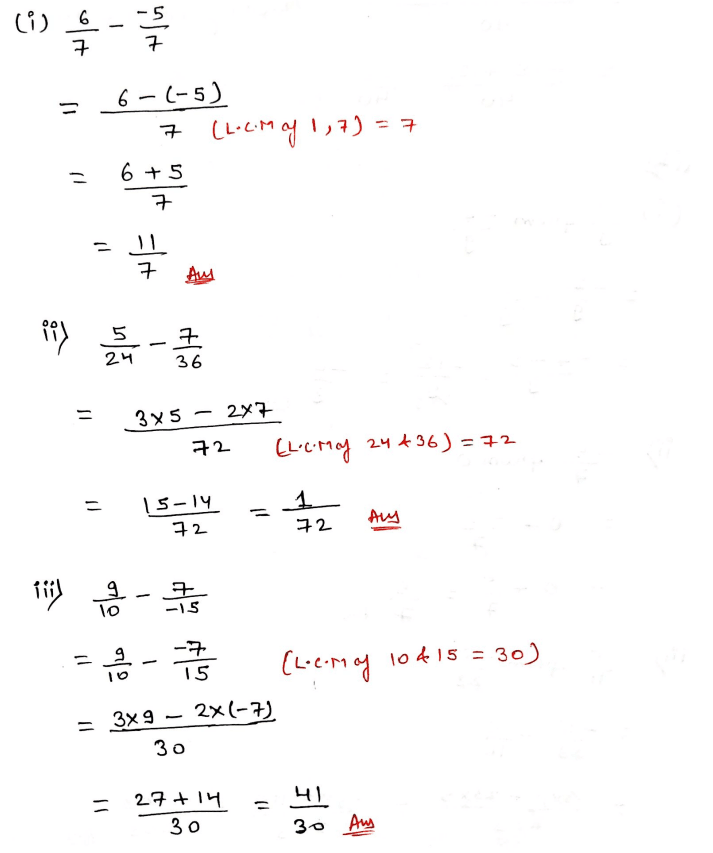 (i) 6/7 - -5/7
= 6-(-5)/7 (L.C.M of 1,7) = 7
= 6+5/7
= 11/7 Ans
ii) 5/24 - 7/36
= 3x5 - 2x7/72 (L.C.M of 24 & 36) = 72
= 15-14/72 = 1/72 Ans
iii) 9/10 - 7/-15
= 9/10 - -7/15 (L.C.M of 10 & 15 = 30)
= 3x9 - 2x(-7)/30
= 27+14/30 = 41/30 Ans